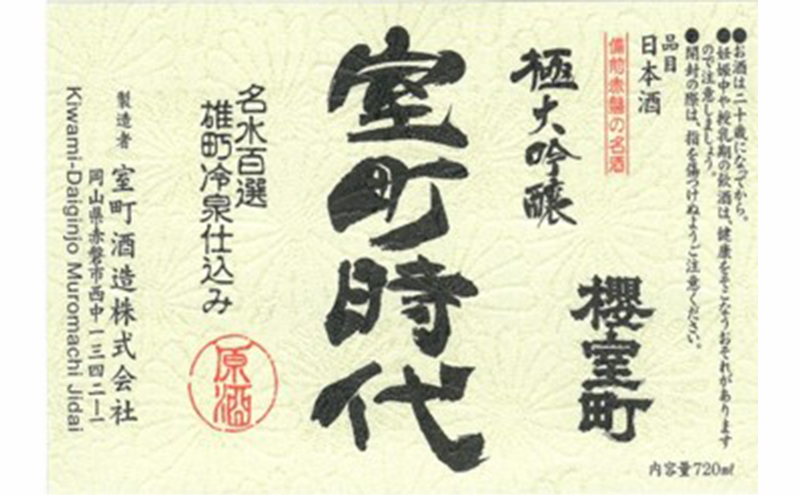 ●お酒は二十歳になってから。
●妊娠中や授乳期の飲酒は、健康をそこなうおそれがあります
ので注意しましょう。
●開封の際は、指を傷つけぬようご注意ください。
品目
日本酒
備前赤盤の名酒
櫻室町
内容量720㎖
極大吟醸
室町時代
名水百選
雄町冷泉仕込み
原酒
製造者 室町酒造株式会社
岡山県赤磐市西中一三四二ー一
Kiwami-Daiginjo Muromachi Jidai